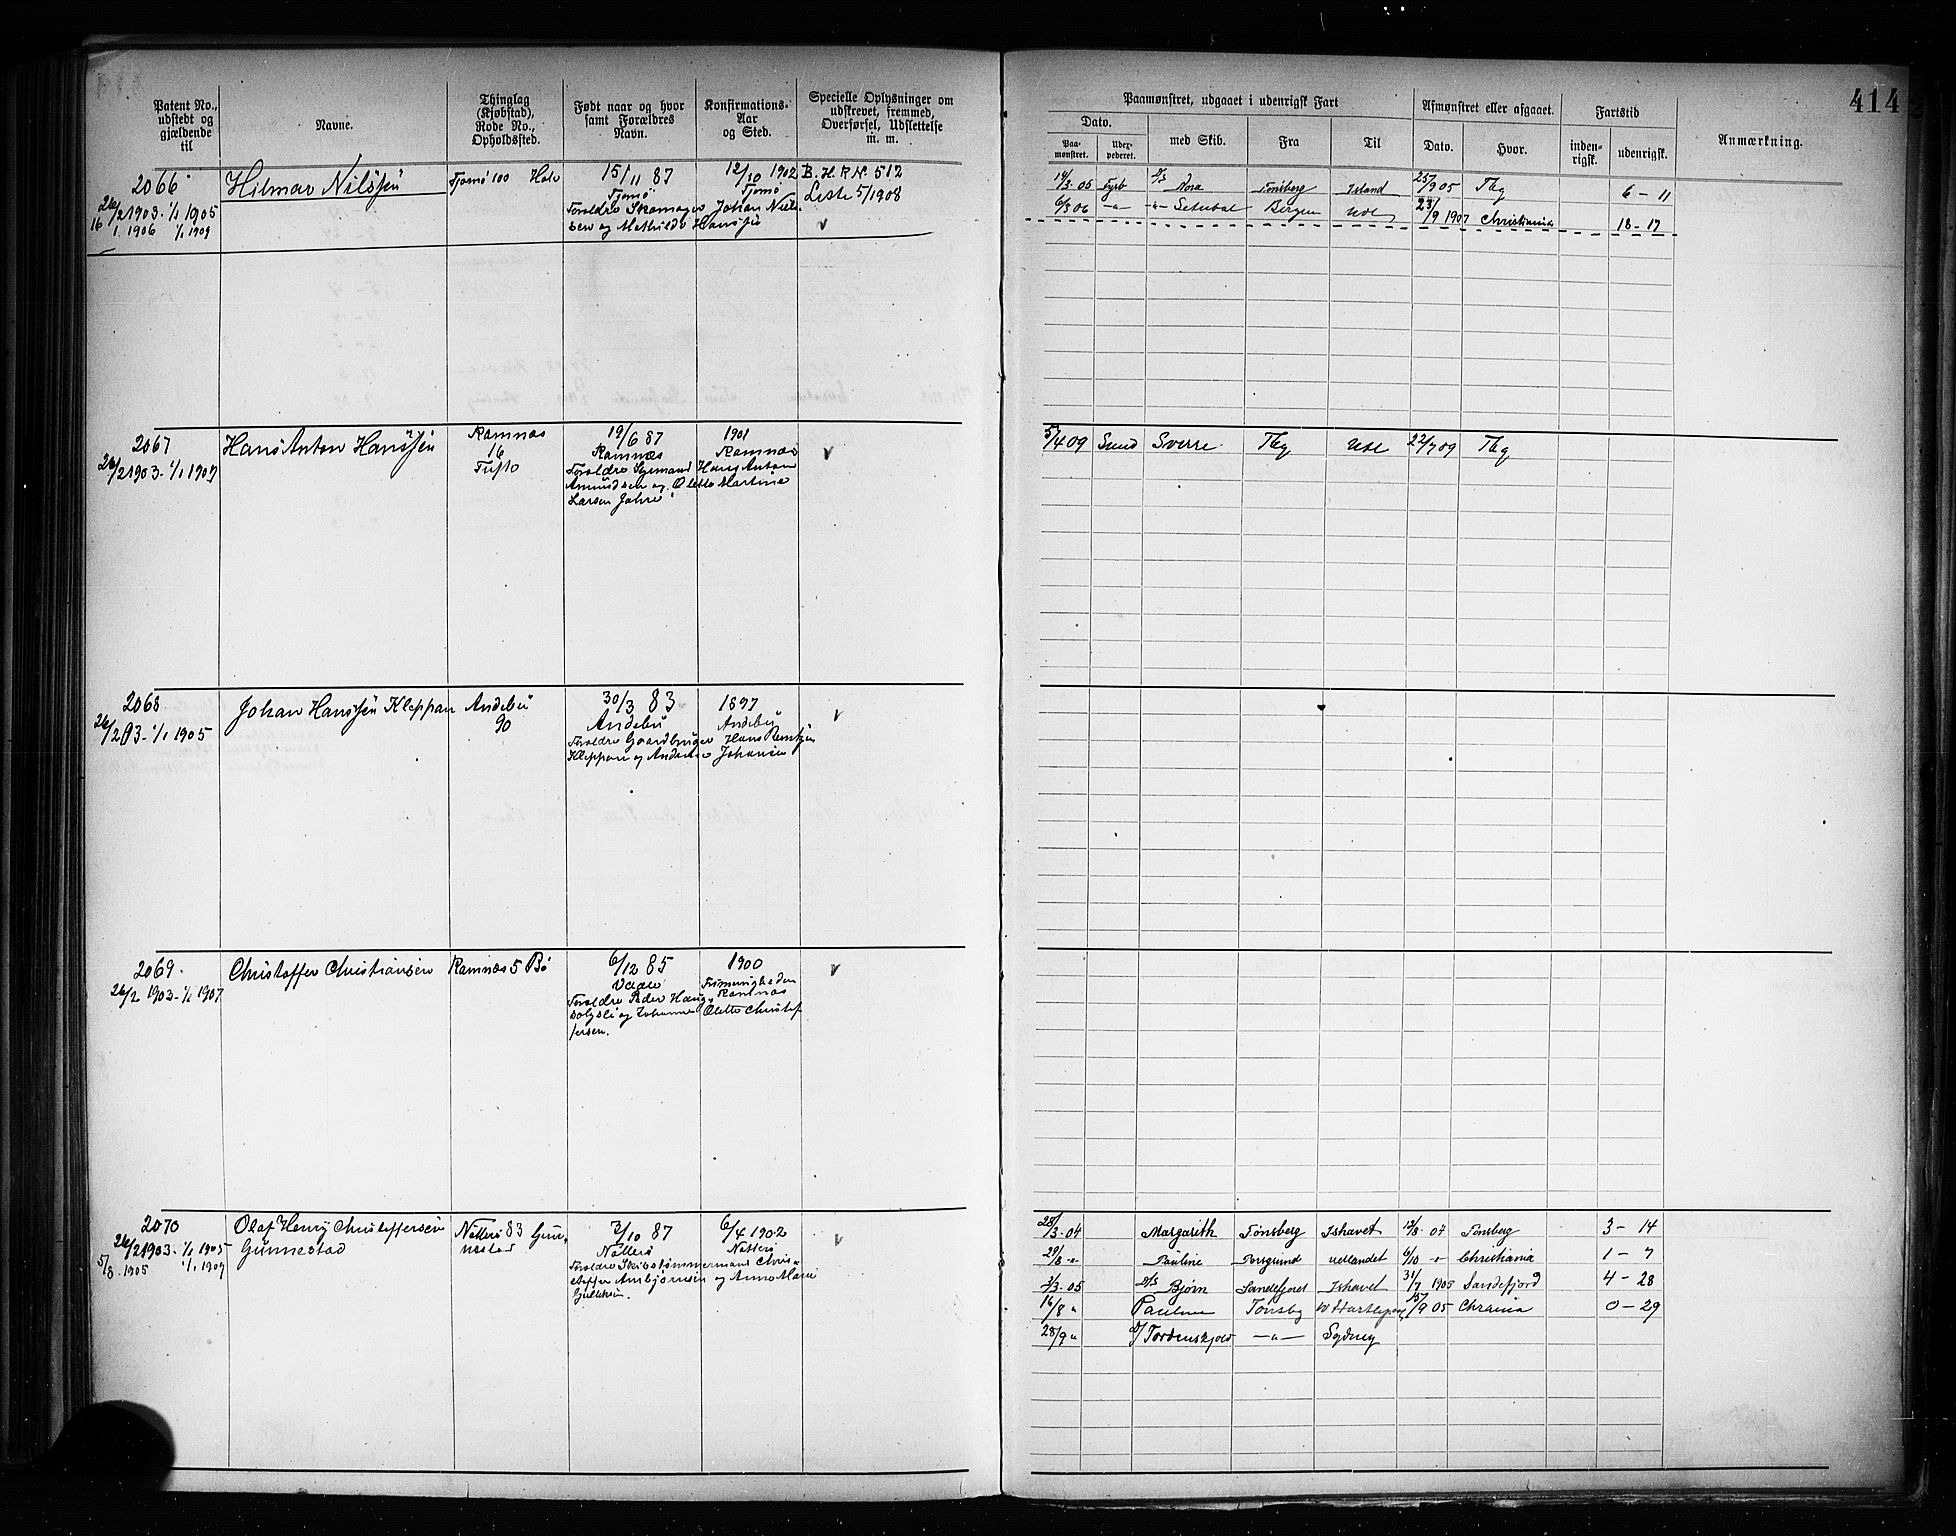 414
Patent No., udstedt og gjældende til
Navne.
Thinglag (Kjøbstad), Rode No., Opholdssted.
Født naar og hvor samt Forældres Navn.
Konfirmations-Aar og Sted.
Specielle Oplysninger om udskrevet, fremmed, Overførsel, Udslettelse m. m.
Paamønstret, udgaaet i udenrigsk Fart
Afmønstret eller afgaaet.
Fartstid
Anmærkning.
Dato.
Paa-mønstret.
Uder-pederet.
med Skib.
Fra
Til
Dato.
Hvor.
inden-rigsk.
udenrigsk.
2066 Hilmar Nilssen Tjømø 100 15/11 87 12/10 1902 B.H.R.N. 512
26/2 1903 - 1/1 1905 Tjømø Tjømø Liste 5/1908
16/1 1906 1/1 1909 Forældre Skomager Johan Niel-
sen og Mathilde Hanssen v
14/3 05 Fyrb D/S Nora Tønsberg Island 25/9 05 Tbg 6 - 11
6/3 06 -"- -"- Setubal Bergen Udl 23/9 1907 Christiania 18 - 17
2067 Hans Anton Hanssen Ramnæs 19/6 87 1901 v
26/2 1903 - 1/1 1907 16 Ramnæs Ramnæs
Tufto Forældre Sømand Hans Anton
Amundsen og Olette Martine
Larsen Jahre
5/4 09 Sverre Tbg Udl 22/7 09 Tbg
2068 Johan Hanssen Kleppan Andebu 30/3 83 1897 v
26/2 03 - 1/1 1905 90 Andebu Andebu
Forældre Gaardbruger Hans
Kleppan og Andrine Johansen
2069 Christoffer Christiansen Ramnæs 5 Bø 6/12 85 1900 v
26/2 1903 - 1/1 1907 Vaale Frimenigheden
Forældre Peder Hans Ramnæs
og Johanne Olette Christof
fersen.
2070 Olaf Henry Christoffersen Nøtterø 83 Gun- 2/10 87 6/4 1902 v
26/2 1903 - 1/1 1905 Gunnestad nestad Nøtterø Nøtterø
5/8 1905 1/1 1907 Forældre Skibstømmermand Chris-
toffer Ambjørnsen og Anna Marie
Gulliksen.
28/3 04 Margarith Tønsberg Ishavet 13/8 04 Tønsberg 3 - 14
29/8 -"- Pauline Porsgrund udlandet 6/10 -"- Christiania 1 - 7
3/3 05 D/S Bjørn Sandefjord Ishavet 31/7 1905 Sandefjord 4 - 28
16/8 " Pauline Tønsbg W Hartlepool 15/9 05 Chrania 0 - 29
28/9 " D/ Tordenskjold -"- Sydney